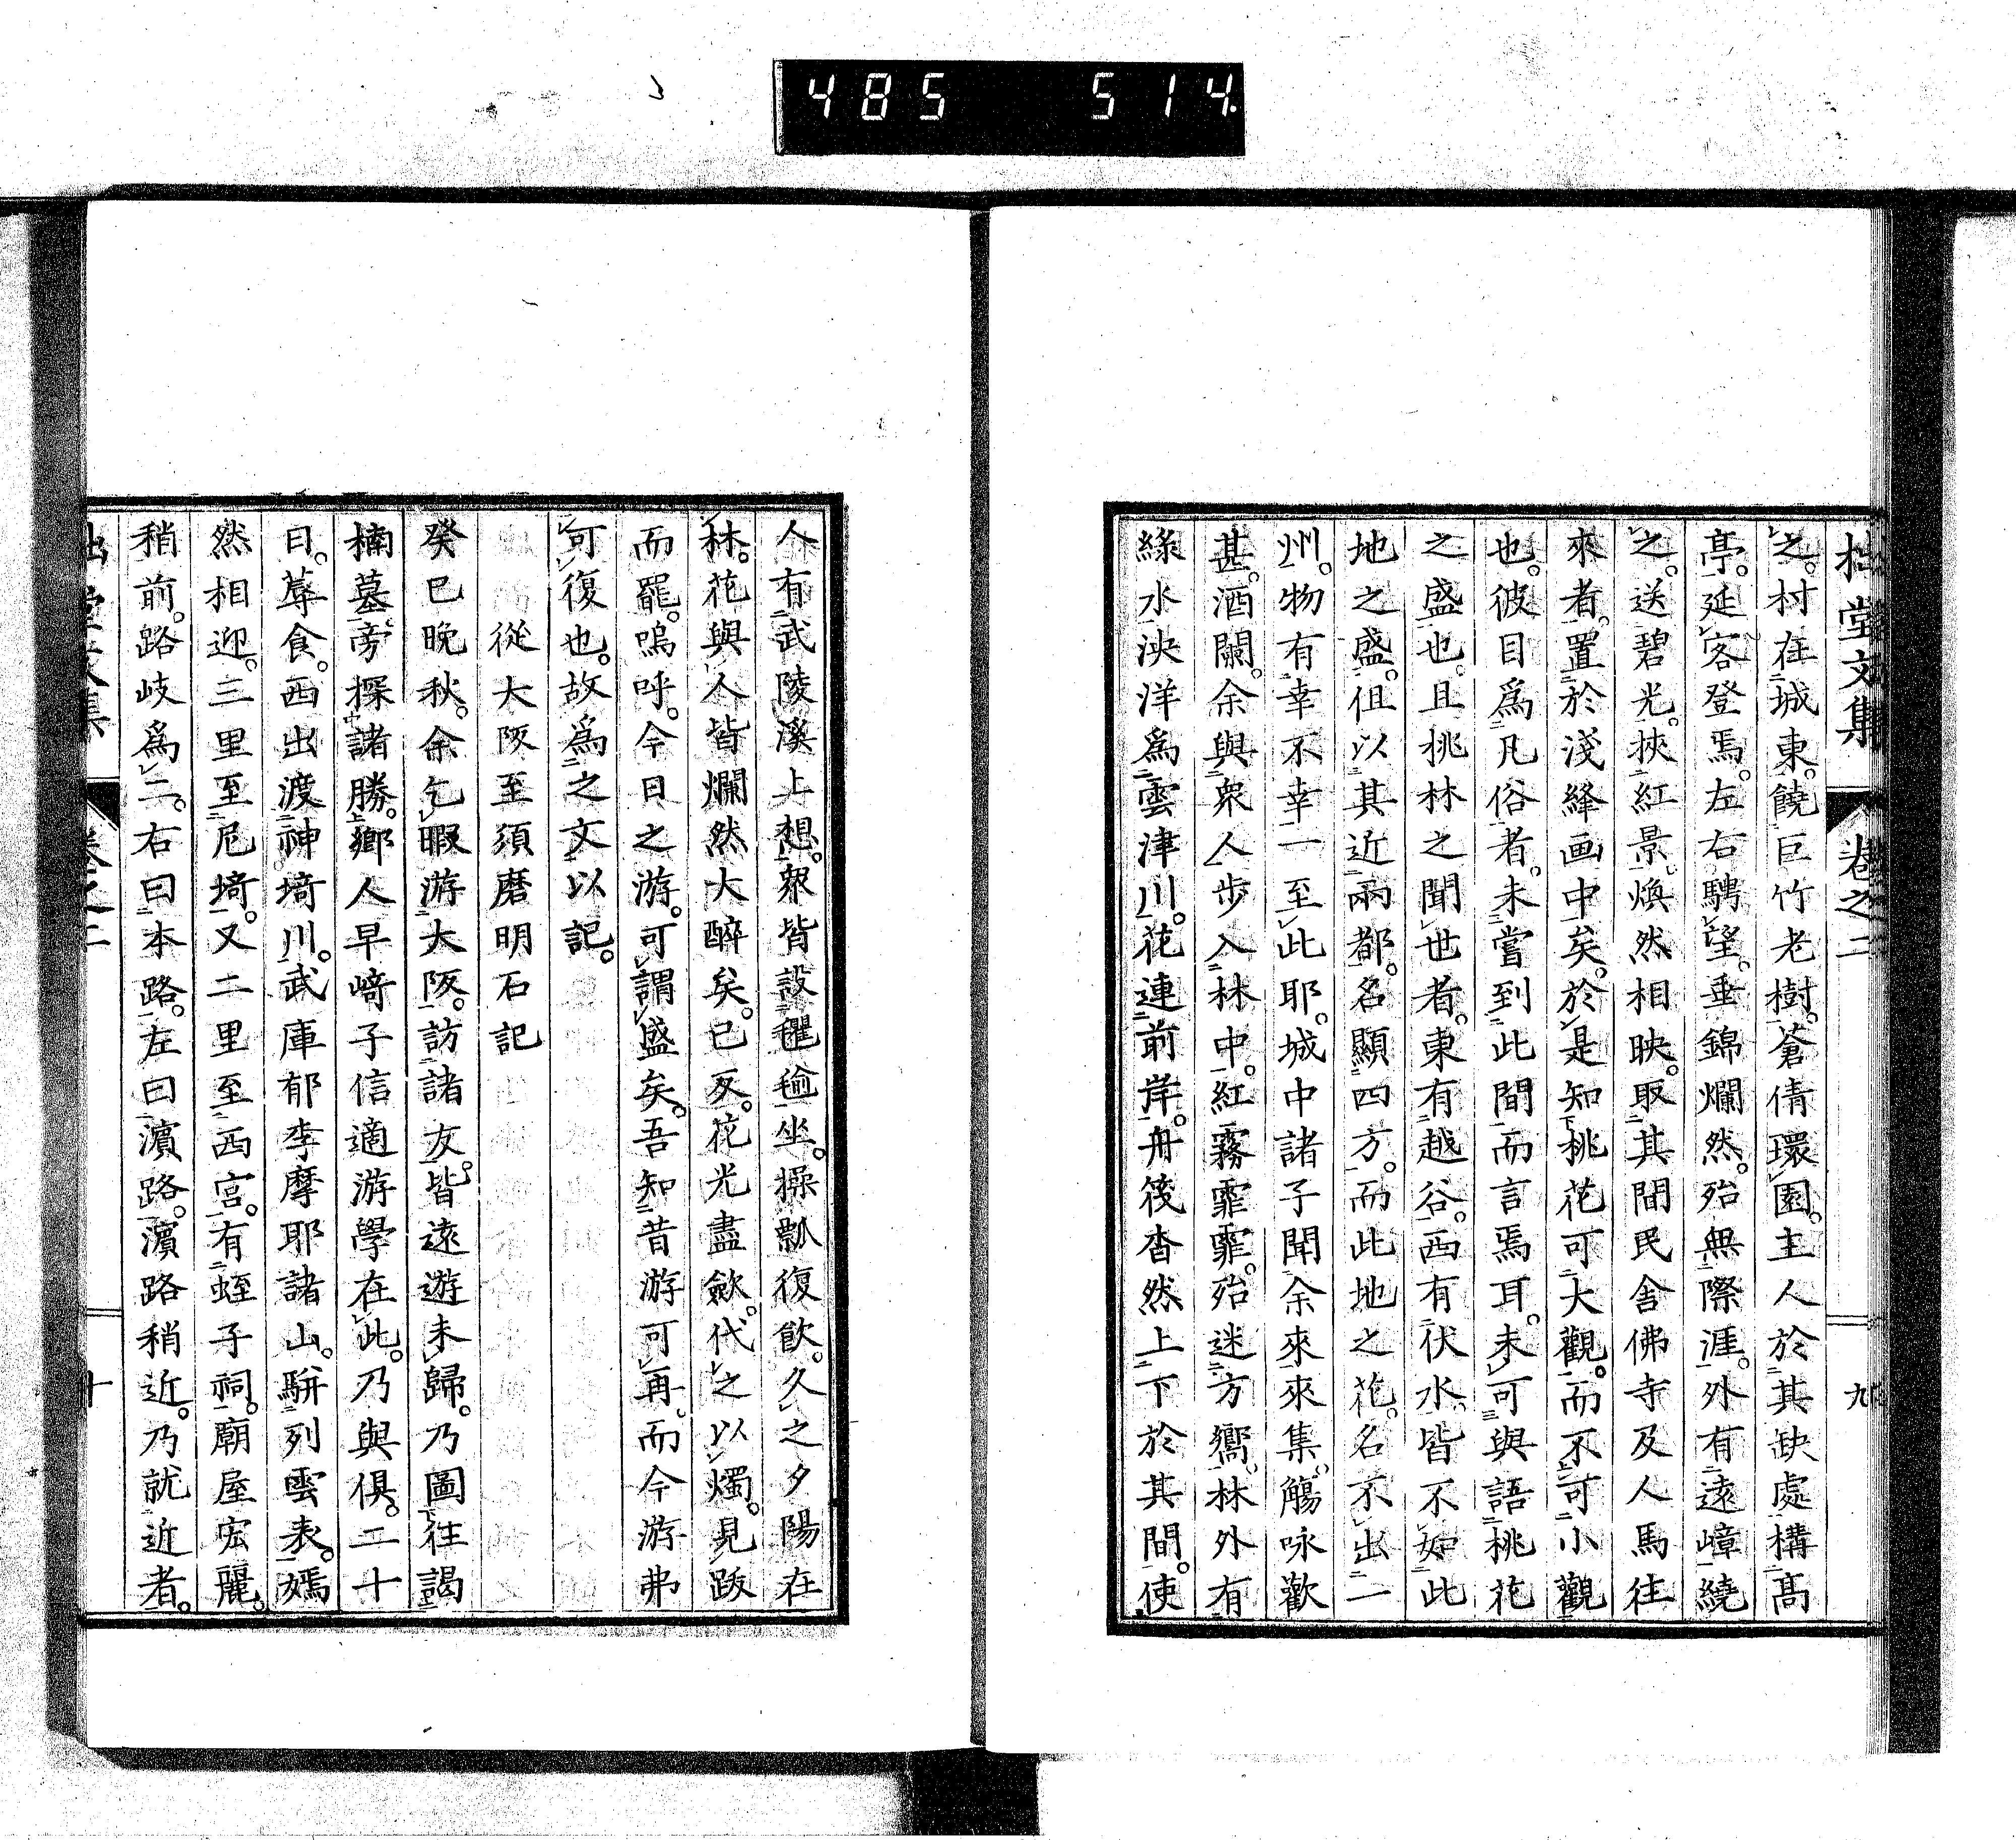 485 514
拙堂文集 卷之二 九
之。村在城東。饒巨竹老樹。蒼倩環園。主人於其缺處構高
亭。延客登焉。左右騁望。垂錦爛然。殆無際涯。外有遠嶂繞
之。送碧光。挾紅景。煥然相映。取其間民舍佛寺及人馬往
來者。置於淺絳画中矣。於是知桃花可大觀。而不可小觀
也。彼目爲凡俗者。未嘗到此間而言焉耳。未可與語桃花
之盛也。且桃林之聞世者。東有越谷。西有伏水。皆不如此
地之盛。但以其近兩都。名顯四方。而此地之花。名不出一
州。物有幸不幸一至此耶。城中諸子聞余來來集。觴咏歡
甚。酒闌。余與衆人步入林中。紅霧霏霏。殆迷方嚮。林外有
綠水泱洋爲雲津川。花連前岸。舟筏杳然上下於其間。使
人有武陵溪上想。衆皆設氍毹坐。操瓢復飲。久之夕陽在
林。花與人皆爛然大醉矣。已歹。花光盡斂。代之以燭。見跋
而罷。嗚呼。今日之游。可謂盛矣。吾知昔游可再。而今游弗
可復也。故爲之文以記。
從大阪至須磨明石記
癸巳晚秋。余乞暇游大阪。訪諸友。皆遠遊未歸。乃圖往謁
楠墓。旁探諸勝。鄉人早﨑子信適游學在此。乃與俱。二十
日。蓐食。西出渡神埼川。武庫郁李摩耶諸山。駢列雲表。嫣
然相迎。三里至尼埼。又二里至西宮。有蛭子祠。廟屋宏麗。
稍前。路岐爲二。右曰本路。左曰濵路。濵路稍近。乃就近者。
拙堂文集 卷之二 十